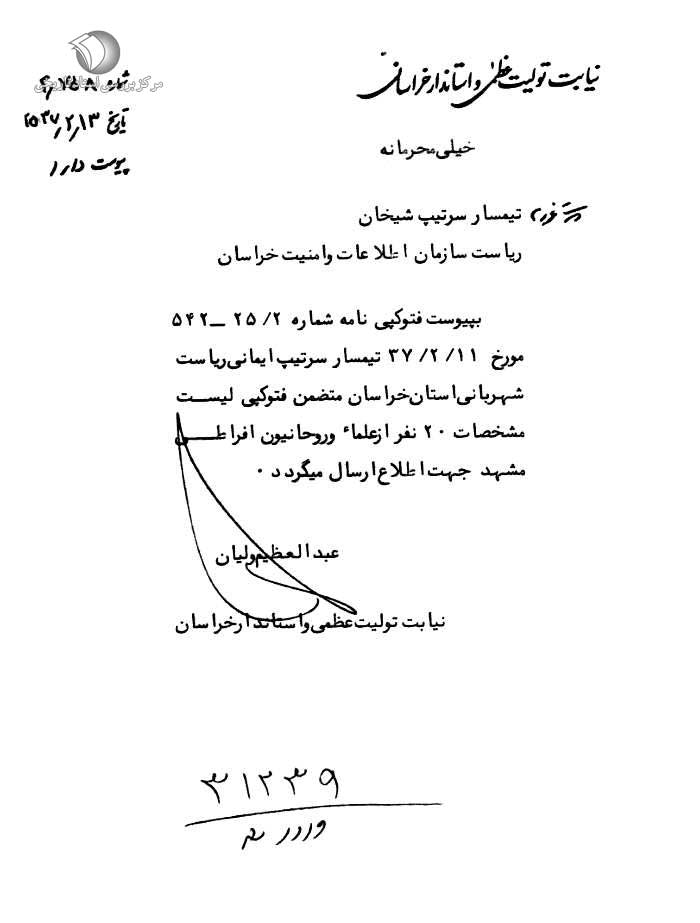 نیابت تولیت عظمی و استاندار خراسان
مرکز بررسی اسناد تاریخی
شماره
تاریخ ۲۵۳۷٫۲٫۱۳
پیوست دارد
خیلی محرمانه
تیمسار سرتیپ شیخان
ریاست سازمان اطلاعات وامنیت خراسان
بپیوست فتوکپی نامه شماره ۲۵/۲ ــ ۵۴۲
مورخ ۳۷/۲/۱۱ تیمسار سرتیپ ایمانی ریاست
شهربانی استان خراسان متضمن فتوکپی لیست
مشخصات ۲۰ نفر ازعلماء وروحانیون افراطی
مشهد جهت اطلاع ارسال میگردد ۰
عبدالعظیم ولیان
نیابت تولیت عظمی واستاندارخراسان
۳۱۲۳۹